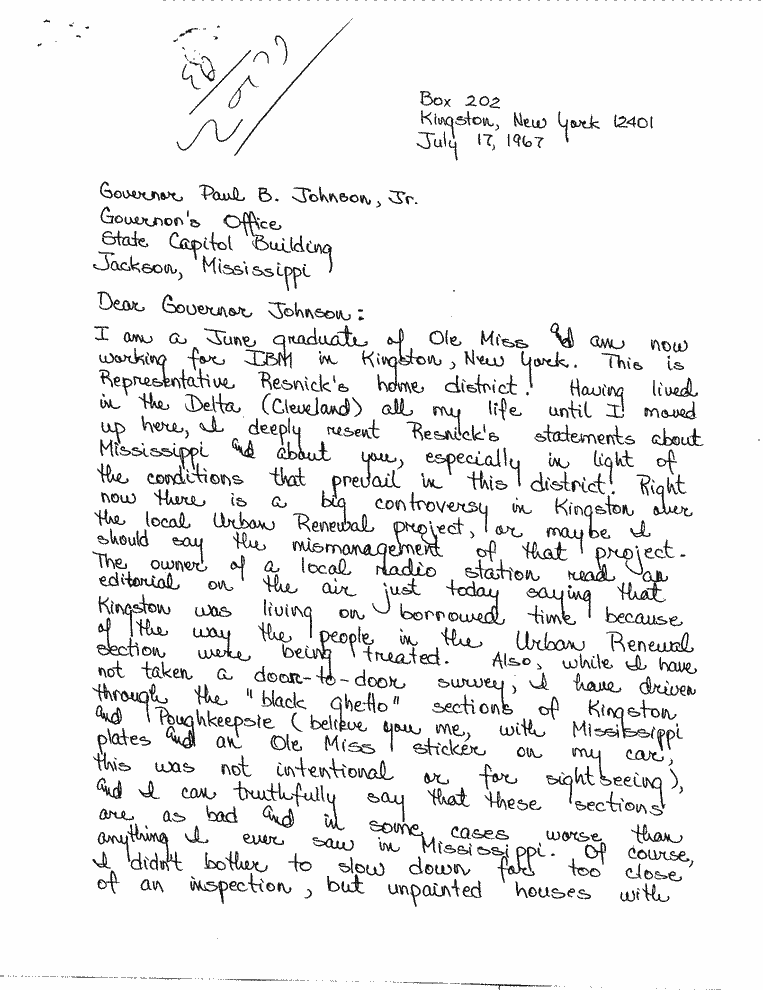 Box 202
Kingston, New York 12401
July 17, 1967
Governor Paul B. Johnson, Jr.
Governor's Office
State Capitol Building
Jackson, Mississippi
Dear Governor Johnson:
I am a June graduate of Ole Miss and am now
working for IBM in Kingston, New York. This is
Representative Resnick's home district! Having lived
in the Delta (Cleveland) all my life until I moved
up here, I deeply resent Resnick's statements about
Mississippi and about you, especially in light of
the conditions that prevail in this district! Right
now there is a big controversy in Kingston over
the local Urban Renewal project, or maybe I
should say the mismanagement of that project.
The owner of a local radio station read an
editorial on the air just today saying that
Kingston was living on borrowed time because
of the way the people in the Urban Renewal
section were being treated. Also, while I have
not taken a door-to-door survey, I have driven
through the "black ghetto" sections of Kingston
and Poughkeepsie (believe you me, with Mississippi
plates and an Ole Miss sticker on my car,
this was not intentional or for sightseeing),
and I can truthfully say that these sections
are as bad and in some cases worse than
anything I ever saw in Mississippi. Of course,
I didn't bother to slow down for too close
of an inspection, but unpainted houses with